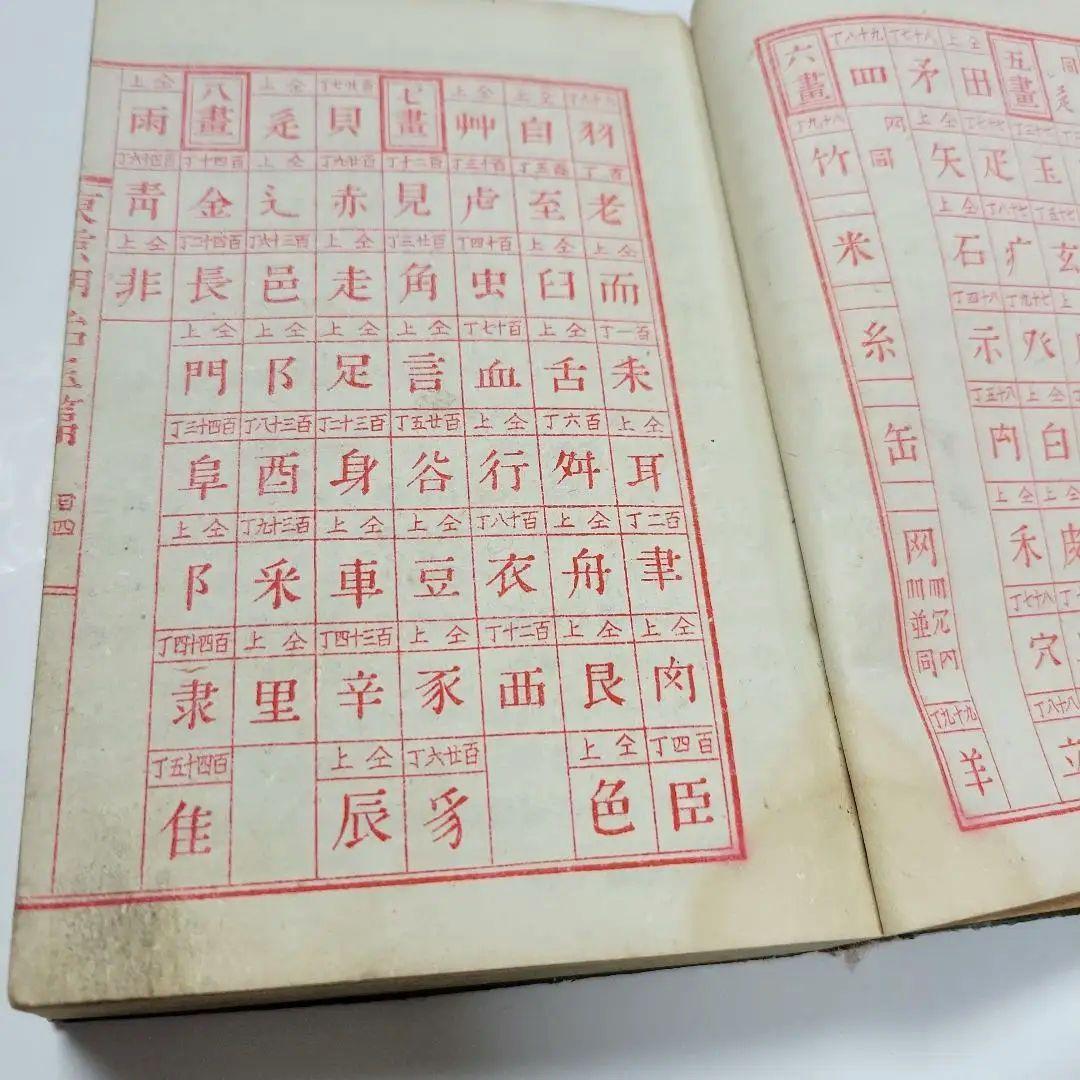 五畫 玉 玄
仝上 田 七十七丁 疋 七十八丁 疒 七十九丁 癶 仝上 白 仝上
八十七丁 矛 仝上 矢 仝上 石 八十四丁 示 八十五丁 禸 仝上 禾 八十七丁 穴 八十八丁 立
八十九丁 罒 同
六畫 八十九丁 竹 米 糸 缶 网 並同 九十九丁 羊
羽 百丁 老 仝上 而 百一丁 耒 仝上 耳 百二丁 聿 仝上 肉 百四丁 臣
仝上 自 百五丁 至 仝上 臼 仝上 舌 百六丁 舛 仝上 舟 仝上 艮 仝上 色
仝上 艸 百十三丁 虍 百十四丁 虫 百十七丁 血 仝上 行 百十八丁 衣 百二十丁 襾
七畫 百二十丁 見 百廿三丁 角 仝上 言 百廿五丁 谷 仝上 豆 仝上 豕 百廿六丁 豸
百廿七丁 貝 百廿九丁 赤 仝上 走 仝上 足 百三十二丁 身 仝上 車 百三十四丁 辛 仝上 辰
仝上 辵 仝上 辶 百三十六丁 邑 仝上 阝 百三十八丁 酉 百三十九丁 釆 仝上 里
八畫 百四十丁 金 百四十二丁 長 仝上 門 百四十三丁 阜 仝上 阝 百四十四丁 隶 百四十五丁 隹
仝上 雨 百四十六丁 靑 仝上 非
目四